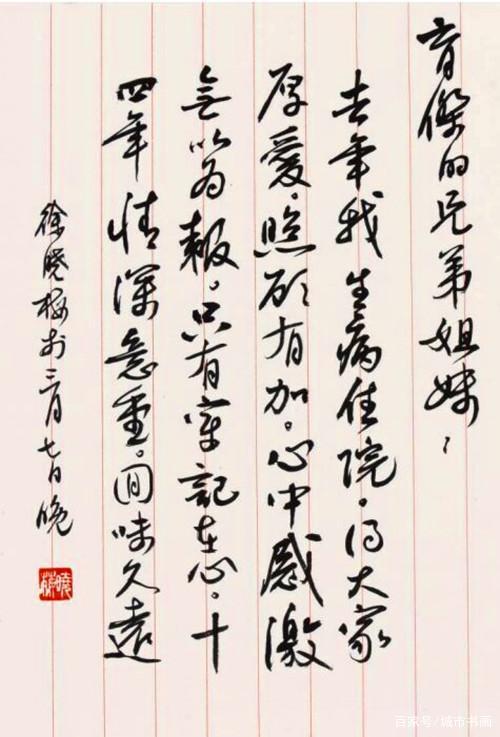 育傑的兄弟姐妹：
去年我生病住院。得大家
厚愛。照顾有加。心中感激
無以为報。只有牢記在心。十
四年情深意重。回味久遠
徐晓梅于三月七日晚
百家号/城市书画